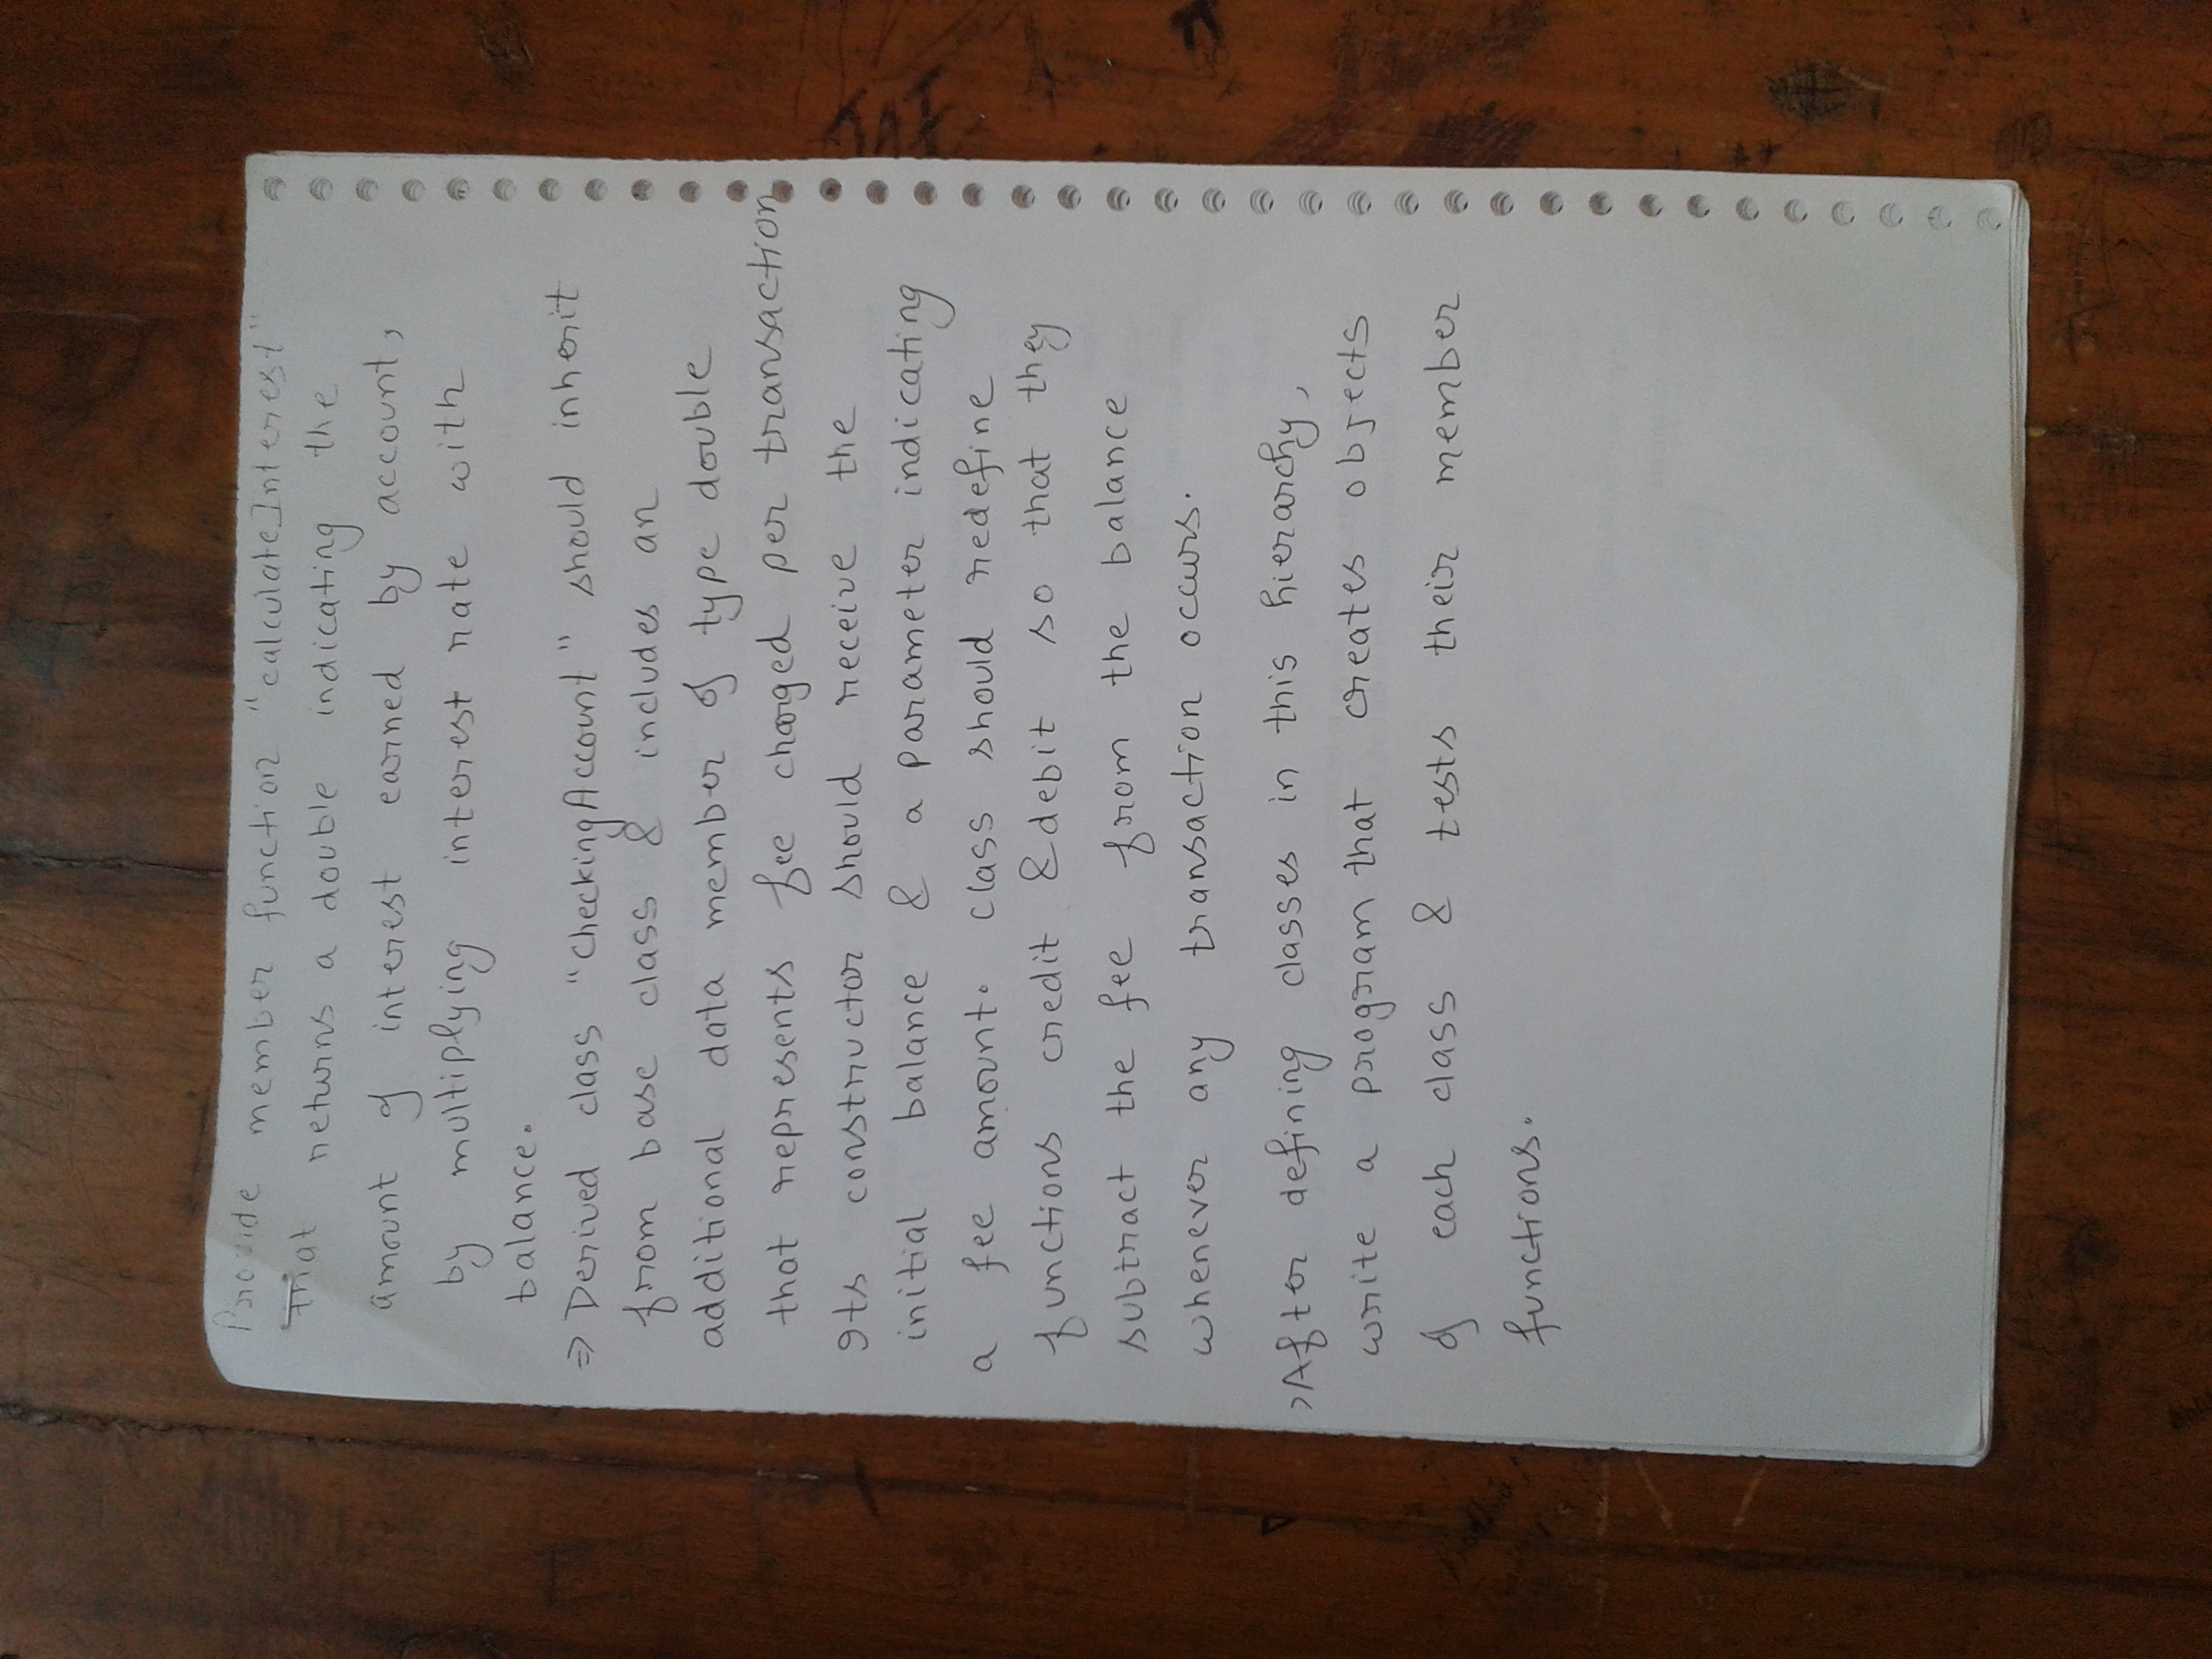 Provide member function "calculateInterest"
that returns a double indicating the
amount of interest earned by account,
by multiplying interest rate with
balance.
=> Derived class "checkingAccount" should inherit
from base class & includes an
additional data member of type double
that represents fee charged per transaction
Its constructor should receive the
initial balance & a parameter indicating
a fee amount. class should redefine
functions credit & debit so that they
subtract the fee from the balance
whenever any transaction occurs.
>After defining classes in this hierarchy,
write a program that creates objects
of each class & tests their member
functions.